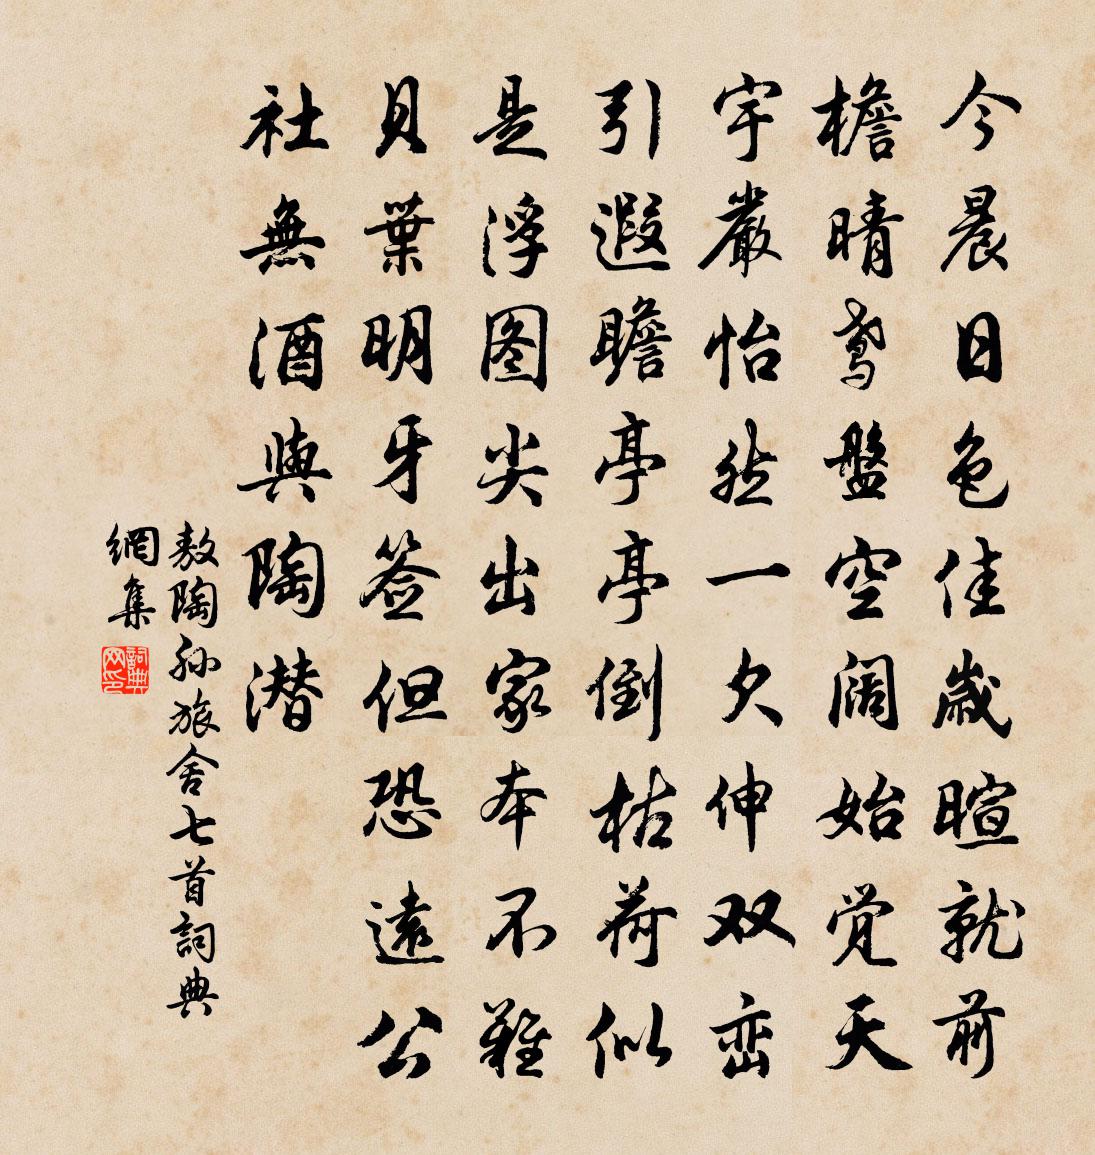 今晨日色佳歲暄就前
檐晴鳶盤空闊始觉天
宇嚴怡然一欠伸双峦
引遐瞻亭亭倒枯荷似
是浮图尖出家本不難
貝葉明牙签但恐遠公
社無酒與陶潜
敖陶孙旅舍七首詞典
網集
詞典
网印